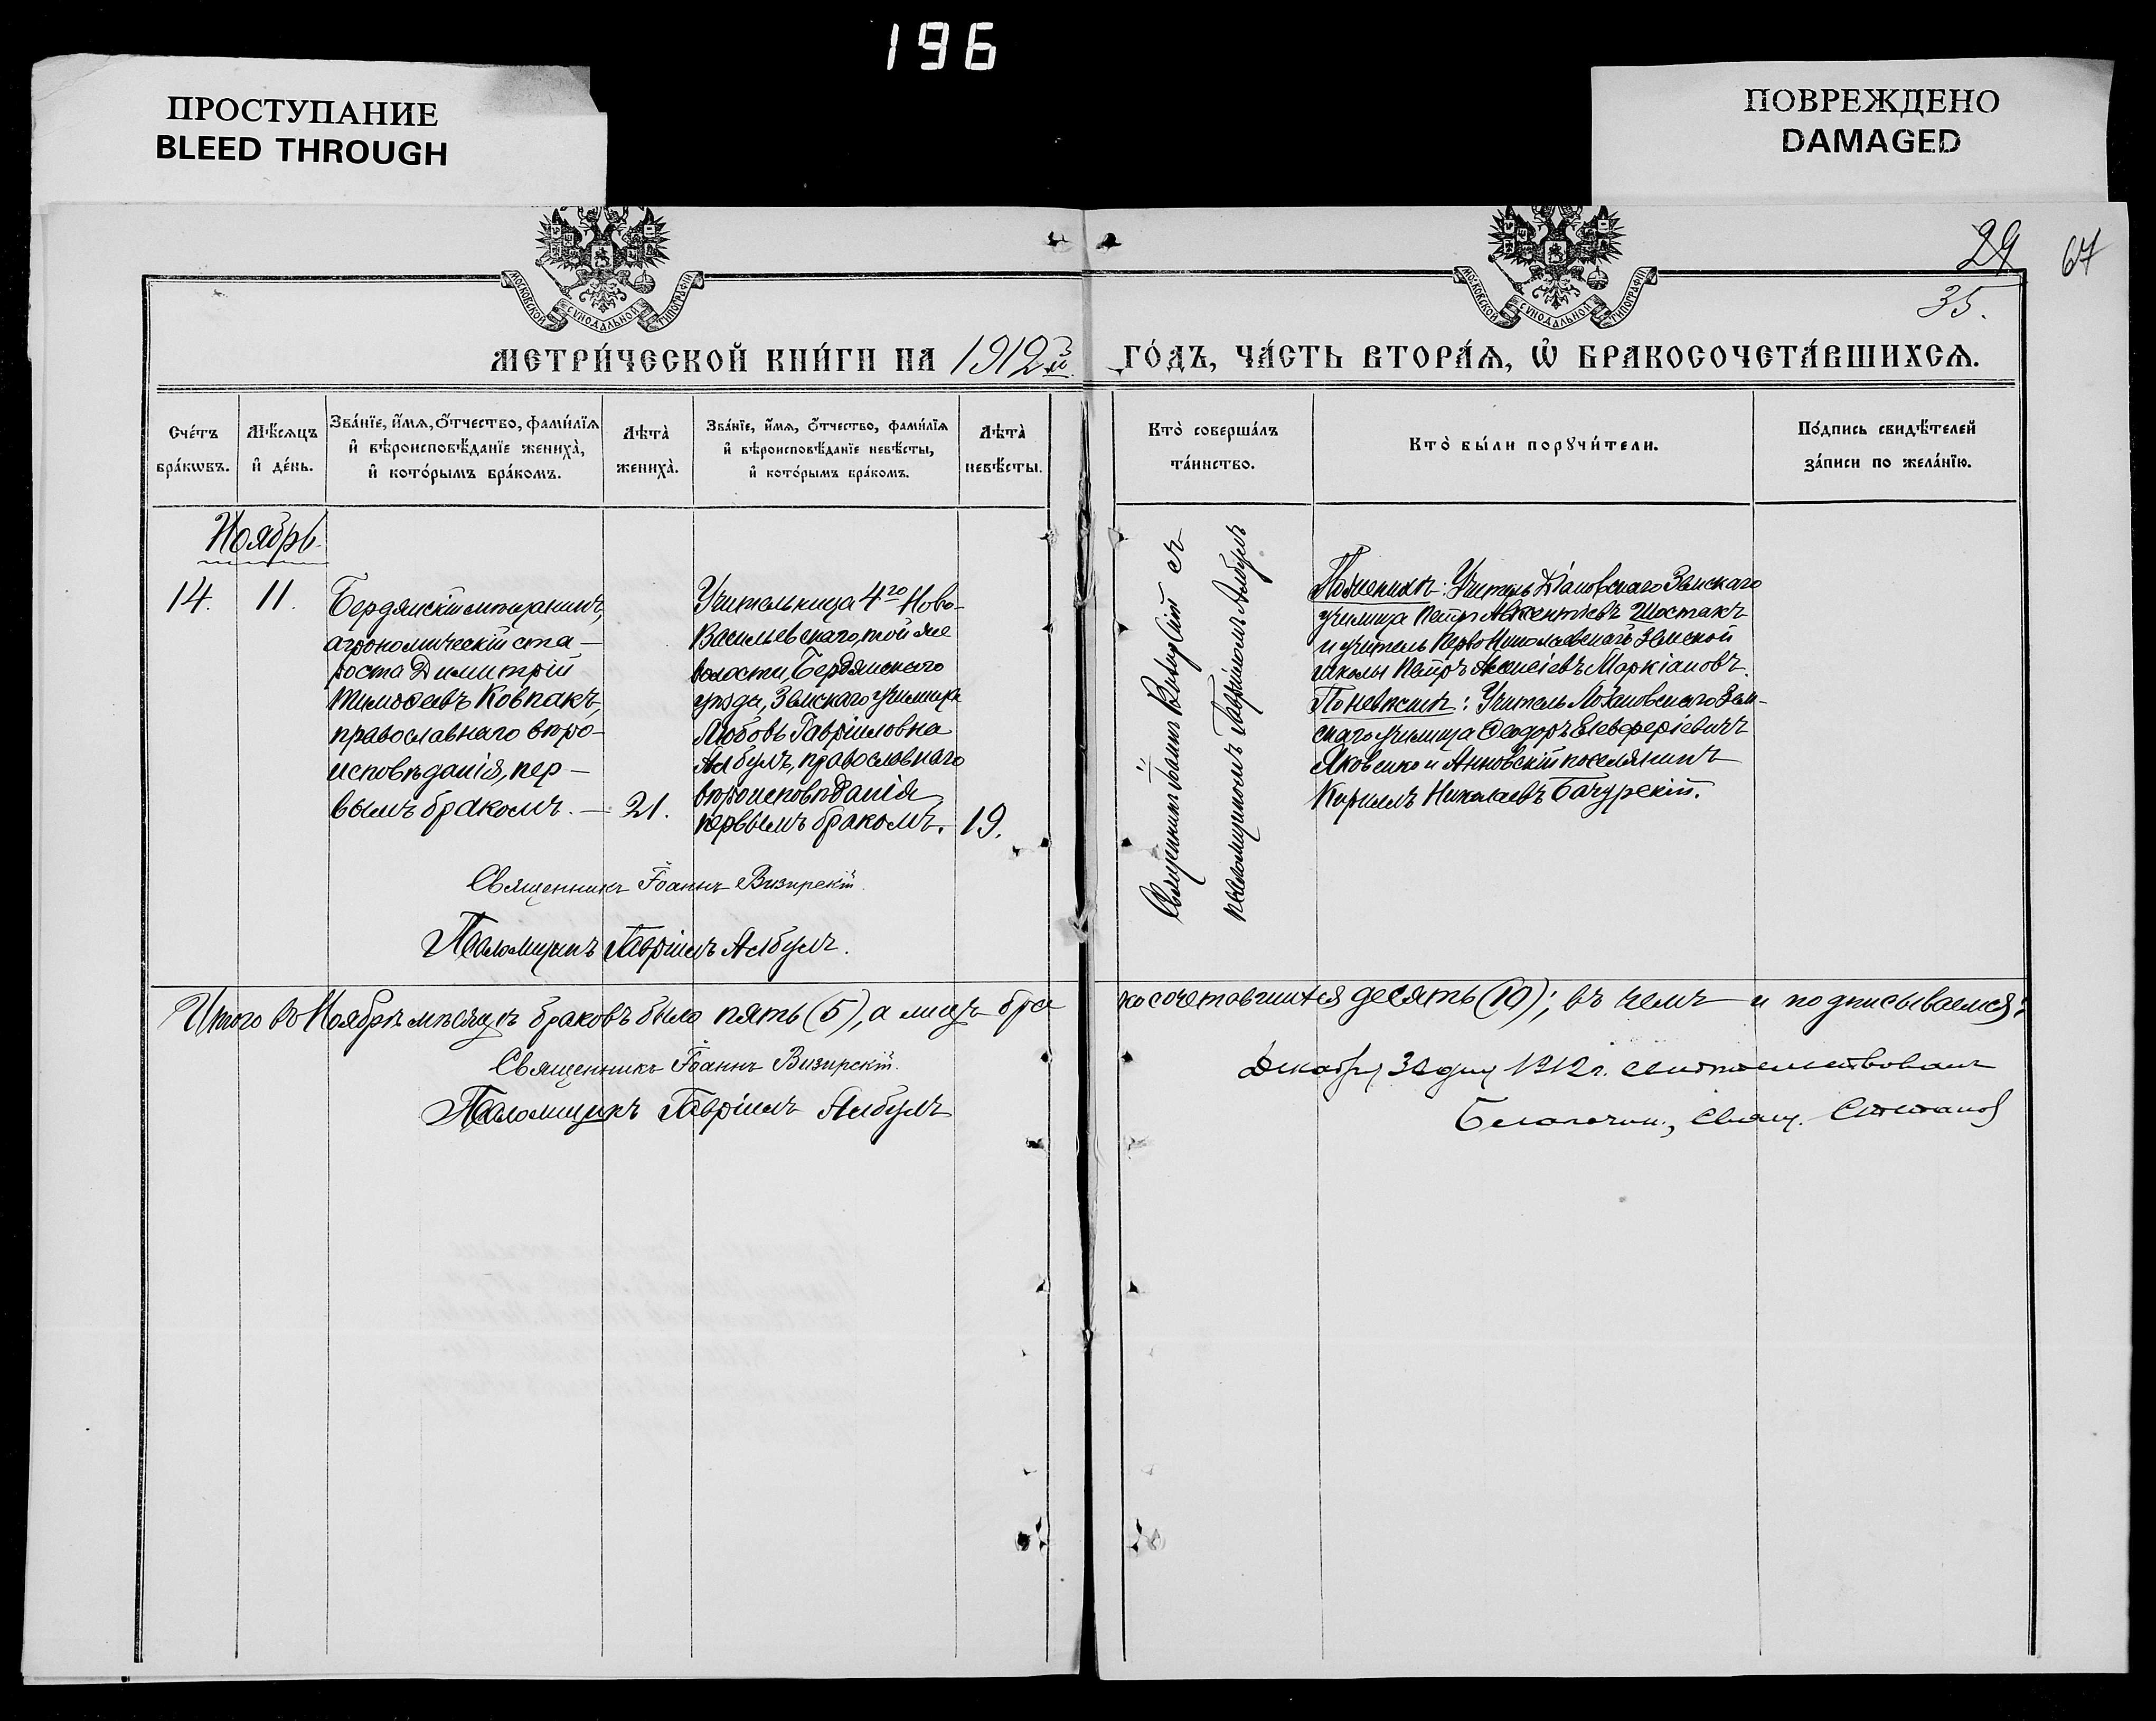 196
ПРОСТУПАНИЕ
BLEED THROUGH
ПОВРЕЖДЕНО
DAMAGED
МОСКОВСКОЙ СѴНОДАЛЬНОЙ ТИПОГРАФІИ
МОСКОВСКОЙ СѴНОДАЛЬНОЙ ТИПОГРАФІИ
29
67
35.
МЕТРИ́ЧЕСКОЙ КНИ́ГИ НА 1912й ГО́ДЪ, ЧА́СТЬ ВТОРА́Я, Ѡ҆ БРАКОСОЧЕТА́ВШИХСЯ.
Сче́тъ
бра́кѡвъ.
Мѣ́сяцъ
и҆ де́нь.
Зва́нїе, и҆́мя, ѻ҆́тчество, фами́лїя
и҆ вѣроисповѣ́данїе жениха̀,
и҆ кото́рымъ бра́комъ.
Лѣта̀
жениха̀.
Зва́нїе, и҆́мя, ѻ҆́тчество, фами́лїя
и҆ вѣроисповѣ́данїе невѣ́сты,
и҆ кото́рымъ бра́комъ.
Лѣта̀
невѣ́сты.
Кто̀ соверша́лъ
та́инство.
Кто̀ бы́ли порꙋчи́тели.
По́дпись свидѣ́телей
за́писи по жела́нїю.
Ноябрь.
14.
11.
Бердянскій мѣщанинъ,
агрономическій ста-
роста Димитрій
Тимоѳеевъ Ковпакъ,
православнаго вѣро-
исповѣданія, пер-
вымъ бракомъ. —
21.
Учительница 4го Ново-
Васильевскаго, той же
волости, Бердянскаго
уѣзда, Земскаго училища
Любовь Гавріиловна
Албулъ, православнаго
вѣроисповѣданія
первымъ бракомъ.
19.
Священникъ Іоаннъ Визирскій съ
псаломщикомъ Гавріиломъ Албулъ
По женихѣ: Учитель Діановскаго Земскаго
училища Петръ Авксентіевъ Шостакъ
и учитель Перво Николаевской Земской
школы Петръ Алексіевъ Маркіановъ.
По невѣстѣ: Учитель Зем-
скаго училища Ѳеодоръ Елевферіевичъ
Яковенко и Анновскій поселянинъ
Кириллъ Николаевъ Бачурскій.
Священникъ Іоаннъ Визирскій.
Псаломщикъ Гавріилъ Албулъ.
Итого въ Ноябрѣ мѣсяцѣ браковъ было пять (5), а лицъ бра косочетавшихся десять (10); въ чемъ и подписываемся:
Священникъ Іоаннъ Визирскій.
Псаломщикъ Гавріилъ Албулъ
Декабря 30 дня 1912 г. свидѣтельствовалъ
Благочин., Свящ.